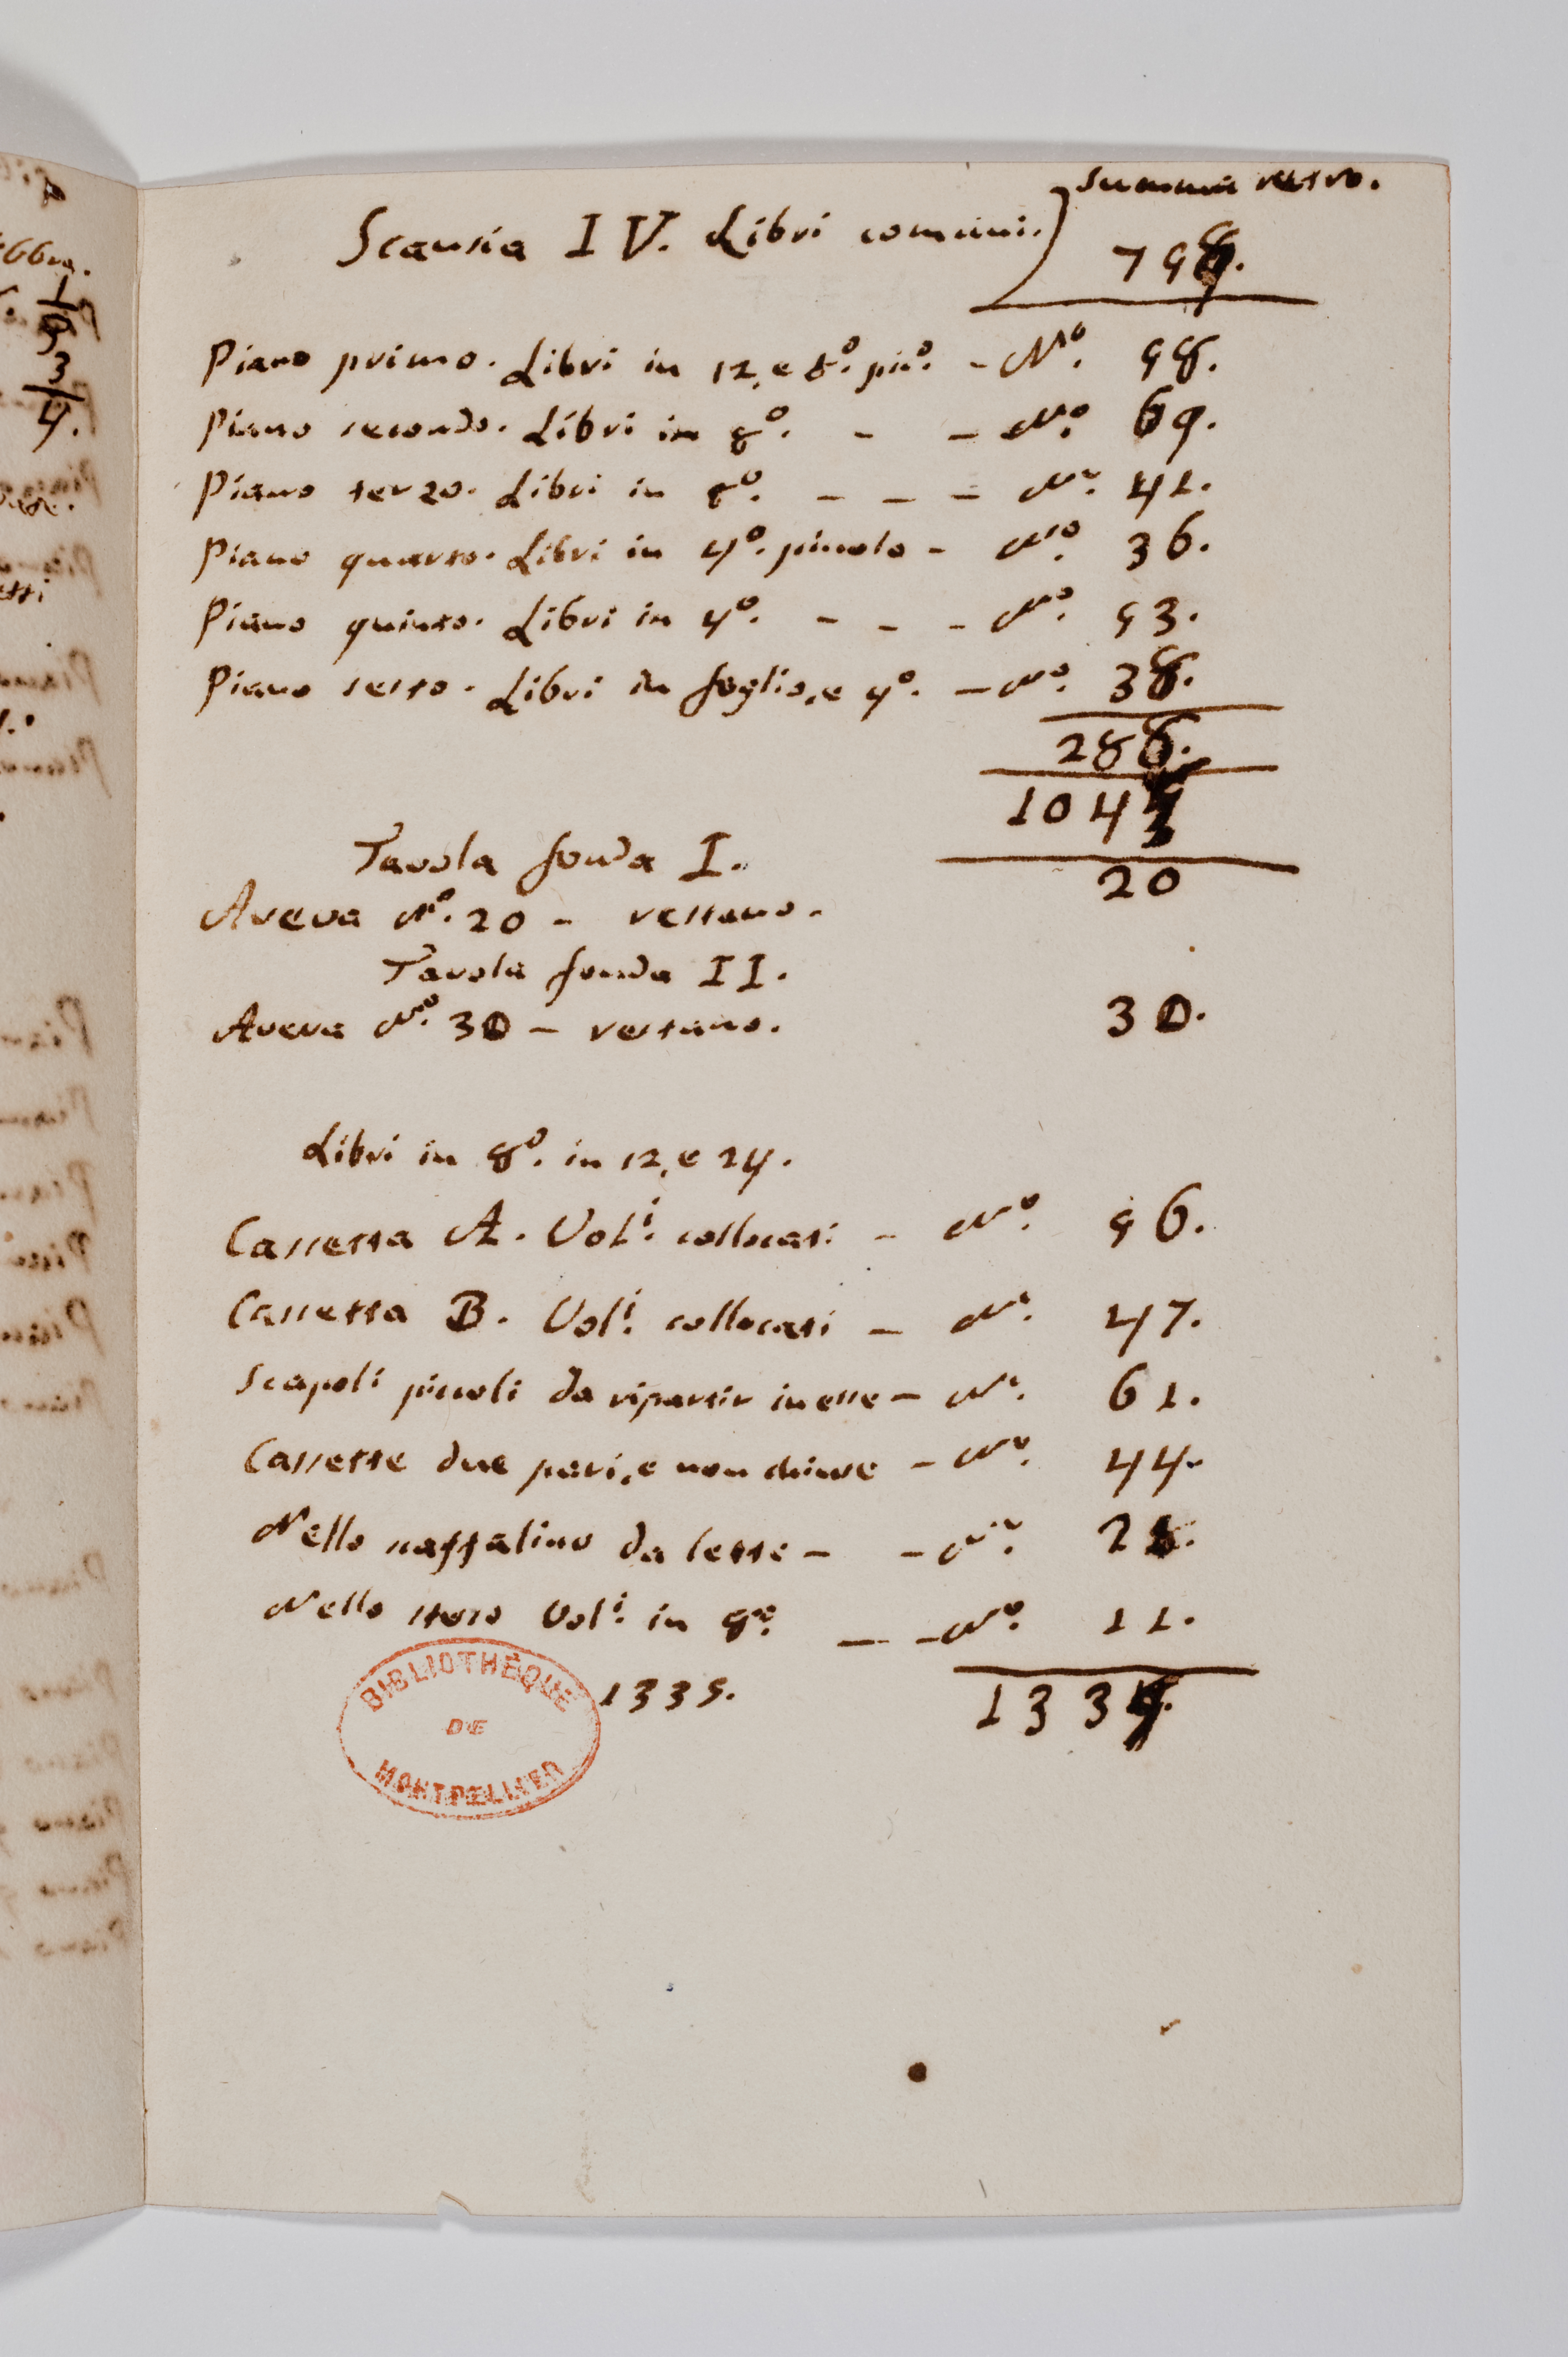 summa retro.
Scansia IV. Libri comuni.) 758.
Piano primo. Libri in 12, e 8º. picº. - Nº. 58.
Piano secondo. Libri in 8º. - - Nº. 69.
Piano terzo. Libri in 8º. - - - Nº. 41.
Piano quarto. Libri in 4º. piccolo - Nº. 36.
Piano quinto. Libri in 4º. - - - Nº. 53.
Piano sesto. Libri in foglio, e 4º. - Nº. 38.
288.
104
Tavola fonda I.
20
Aveva Nº. 20 - restano.
Tavola fonda II.
Aveva Nº. 30 - restano. 30.
Libri in 8º. in 12, e 24.
Cassetta A. Volⁱ. collocati - Nº. 56.
Cassetta B. Volⁱ. collocati - Nº. 47.
Scapoli piccoli da ripartir in esse - Nº. 61.
Cassette due pari, e non chiuse - Nº. 44.
Nello scaffalino da letto - - Nº. 2
Nello stesso Volⁱ. in 8º. - - Nº. 11.
1335. 133
BIBLIOTHÈQUE
DE
MONTPELLIER